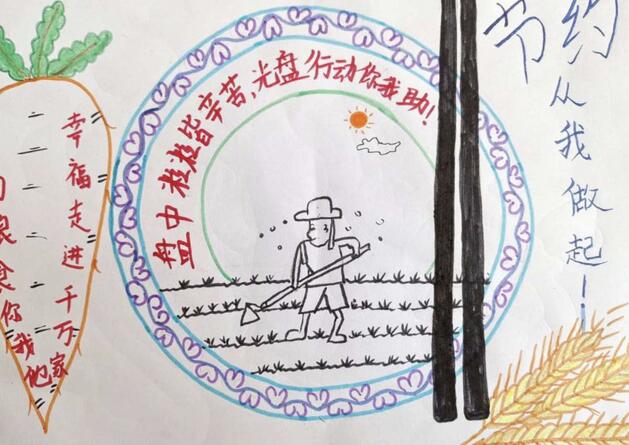 节约
从我做起!
盘中粒粒皆辛苦,光盘行动你我助!
食你我他
幸福走进千万家